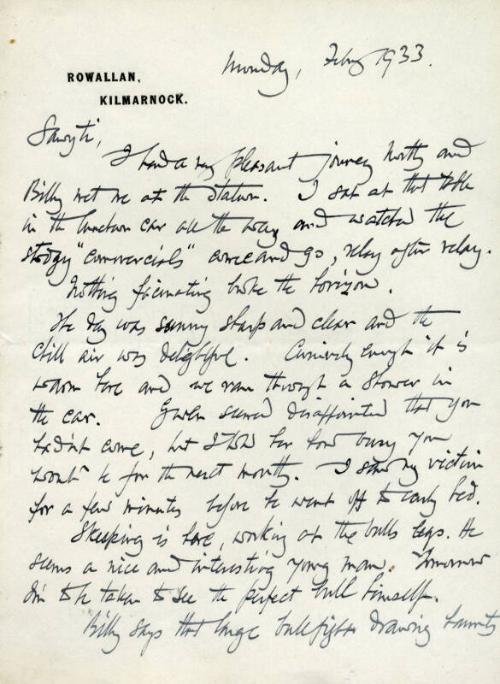 ROWALLAN,
KILMARNOCK.
Monday, Feby 1933.
I had a very pleasant journey North and
Billy met me at the station. I sat at that table
in the luncheon car all the way and watched the
stodgy "commercials" come and go, relay after relay.
Nothing fascinating broke the horizon.
The day was sunny sharp and clear and the
chill air was delightful. Curiously enough it is
warm here and we ran through a shower in
the car. Gwen seemed disappointed that you
hadn't come, but I told her how busy you
would be for the next month. I saw my victim
for a few minutes before he went off to early bed.
Skeaping is here, working at the bulls legs. He
seems a nice and interesting young man. Tomorrow
I'm to be taken to see the perfect bull himself.
Billy says that large bullfight drawing haunts